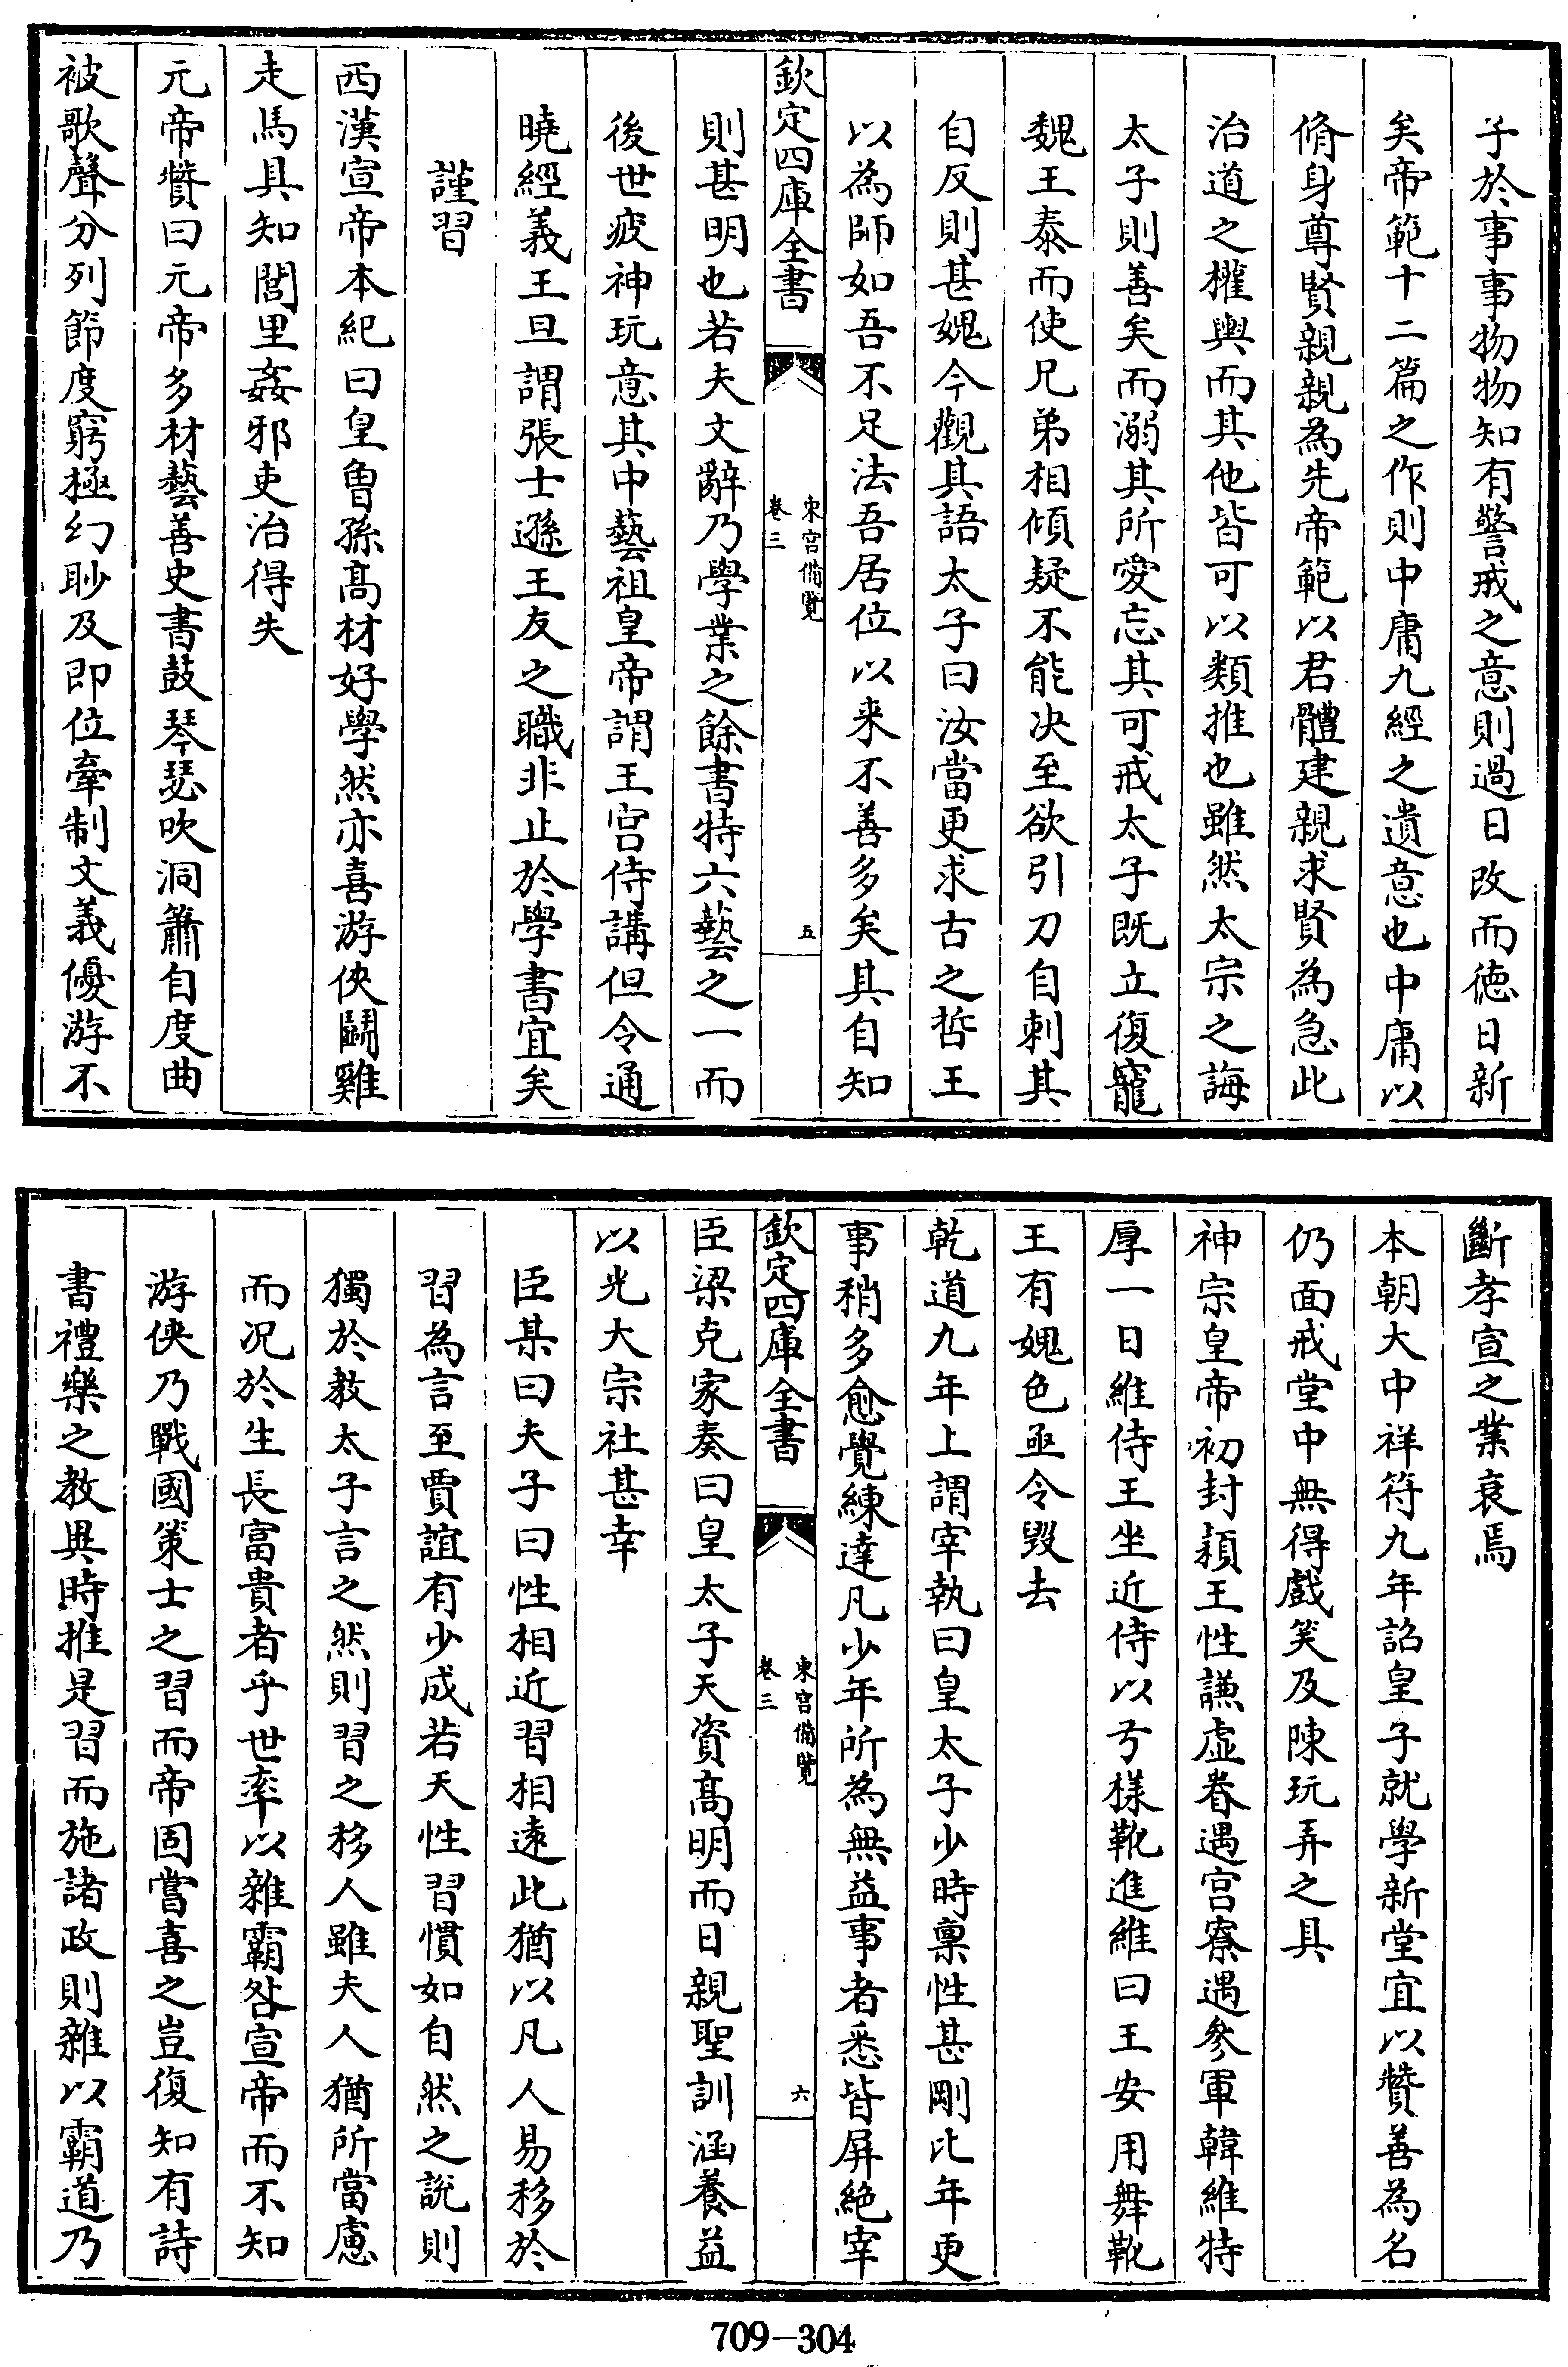 子於事事物物知有警戒之意則過日改而徳日新
矣帝範十二篇之作則中庸九經之遺意也中庸以
脩身尊賢親親為先帝範以君體建親求賢為急此
治道之權輿而其他皆可以類推也雖然太宗之誨
太子則善矣而溺其所愛忘其可戒太子既立復寵
魏王泰而使兄弟相傾疑不能决至欲引刀自刺其
自反則甚媿今觀其語太子曰汝當更求古之哲王
以為師如吾不足法吾居位以来不善多矣其自知
欽定四庫全書
東宫備覽
卷三
五
則甚明也若夫文辭乃學業之餘書特六藝之一而
後世疲神玩意其中藝祖皇帝謂王宫侍講但令通
曉經義王旦謂張士遜王友之職非止於學書宜矣
謹習
西漢宣帝本紀曰皇曾孫髙材好學然亦喜游俠鬭雞
走馬具知閭里姦邪吏治得失
元帝贊曰元帝多材藝善史書鼓琴瑟吹洞簫自度曲
被歌聲分列節度窮極幻眇及即位牽制文義優游不
斷孝宣之業衰焉
本朝大中祥符九年詔皇子就學新堂宜以贊善為名
仍面戒堂中無得戲笑及陳玩弄之具
神宗皇帝初封潁王性謙虚眷遇宫寮遇參軍韓維特
厚一日維侍王坐近侍以弓樣靴進維曰王安用舞靴
王有媿色亟令毁去
乾道九年上謂宰執曰皇太子少時稟性甚剛比年更
事稍多愈覺練達凡少年所為無益事者悉皆屏絶宰
欽定四庫全書
東宫備覽
卷三
六
臣梁克家奏曰皇太子天資髙明而日親聖訓涵養益
以光大宗社甚幸
臣某曰夫子曰性相近習相逺此猶以凡人易移於
習為言至賈誼有少成若天性習慣如自然之說則
獨於教太子言之然則習之移人雖夫人猶所當慮
而况於生長富貴者乎世率以雜霸咎宣帝而不知
游俠乃戰國策士之習而帝固嘗喜之豈復知有詩
書禮樂之教與時推是習而施諸政則雜以霸道乃
709—304